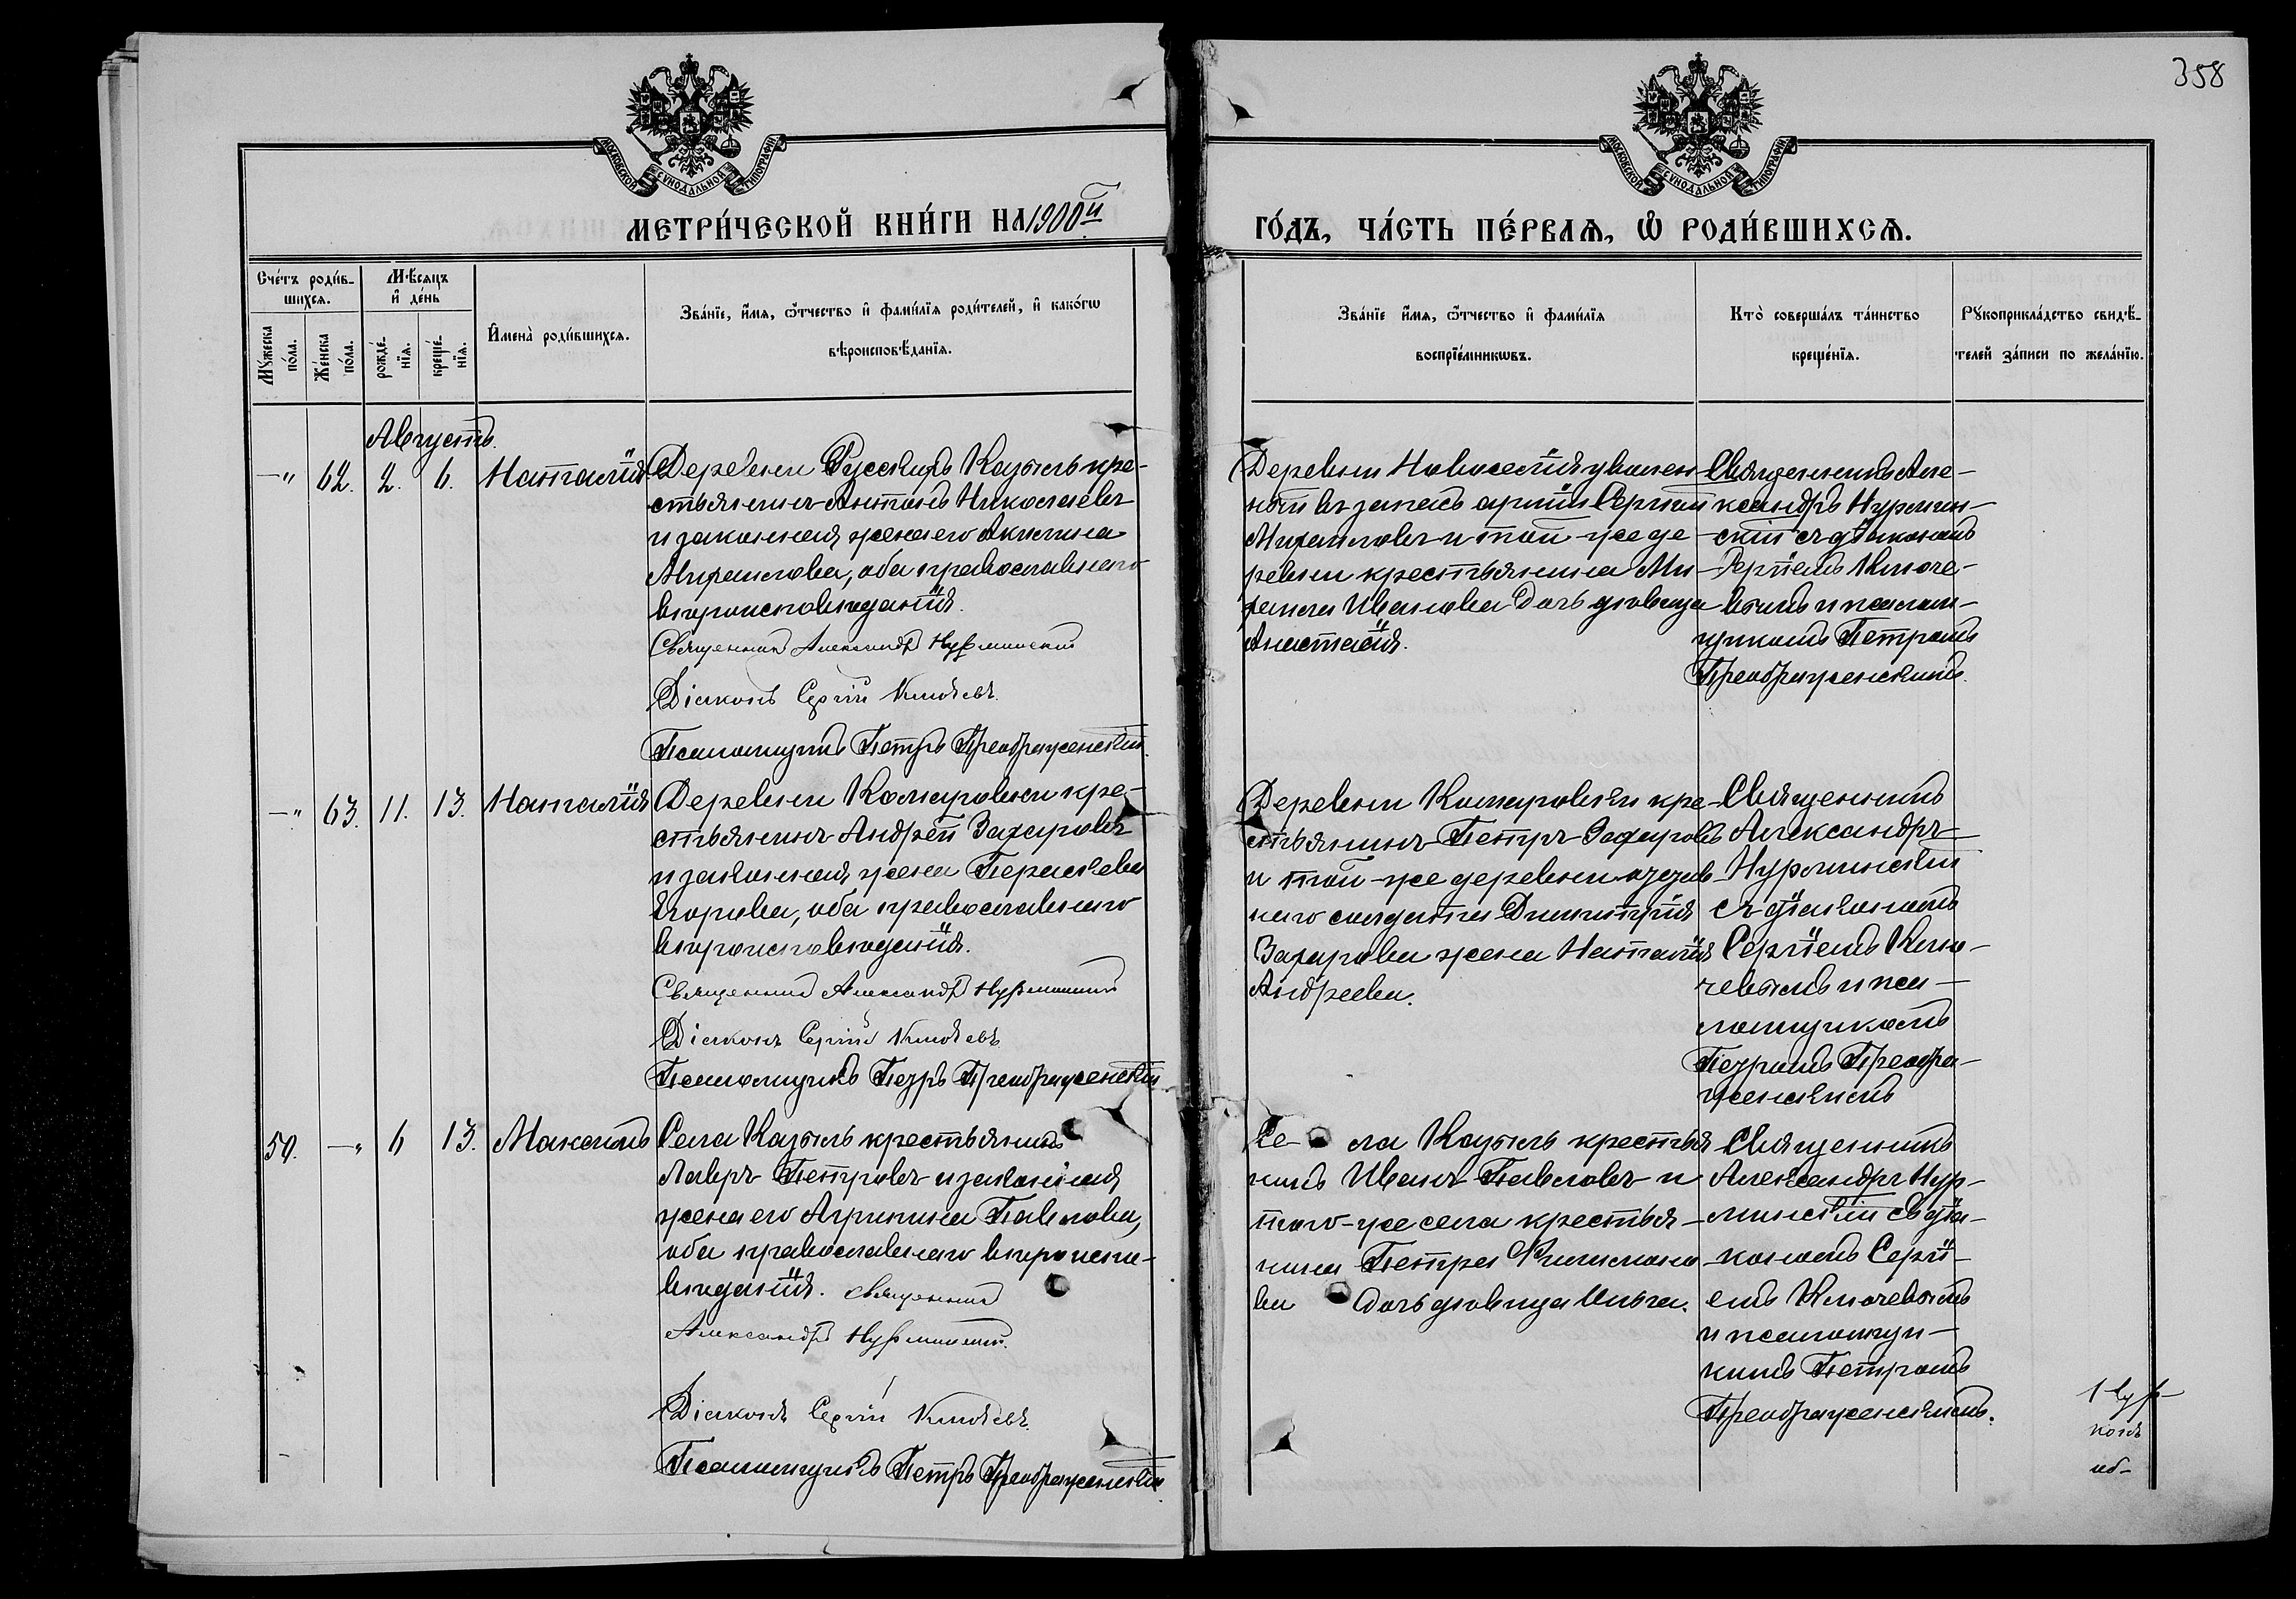 358
МОСКОВСКОЙ СѴНОДАЛЬНОЙ ТИПОГРАФІИ
МОСКОВСКОЙ СѴНОДАЛЬНОЙ ТИПОГРАФІИ
МЕТРИ́ЧЕСКОЙ КНИ́ГИ НА 1900й
ГО́ДЪ, ЧА́СТЬ ПЕ́РВАЯ, Ѡ РОДИ́ВШИХСЯ.
Сче́тъ роди́в-
шихся.
Мѣсяцъ
и҆ де́нь
Му́жеска
по́ла.
Же́нска
по́ла.
рожде́-
нїя.
креще́-
нїя.
И҆мена̀ роди́вшихся.
Зва́нїе, и҆́мя, ѻ҆́тчество и҆ фами́лїя роди́телей, и҆ како́гѡ
вѣроисповѣ́данїя.
Зва́нїе и҆́мя, ѻ҆́тчество и҆ фами́лїя
воспрїе́мникѡвъ.
Кто̀ соверша́лъ та́инство
креще́нїя.
Рꙋкоприкла́дство свидѣ́-
телей за́писи по жела́нїю.
Августъ.
—„ 62. 2. 6. Наталія
Деревни Русскихъ Казыль кре-
стьянинъ Антонъ Николаевъ
и законная жена его Акилина
Михаилова, оба православнаго
вѣроисповѣданія.
Священникъ Александръ Нурминскій
Діаконъ Сергій Ключевъ.
Псаломщикъ Петръ Преображенскій.
Деревни Новоселія уволен-
ный въ запасъ арміи Сергій
Михаиловъ и той-же де-
ревни крестьянина Ми-
хаила Иванова дочь дѣвица
Анастасія.
Священникъ Але-
ксандръ Нурмин-
скій съ діакономъ
Сергіемъ Ключе-
вымъ и псалом-
щикомъ Петромъ
Преображенскимъ.
—„ 63. 11. 13. Наталія
Деревни Комаровки кре-
стьянинъ Андрей Захаровъ
и законная жена Параскева
Егорова, оба православнаго
вѣроисповѣданія.
Священникъ Александръ Нурминскій
Діаконъ Сергій Ключевъ
Псаломщикъ Петръ Преображенскій
Деревни Комаровки кре-
стьянинъ Петръ Захаровъ
и той-же деревни
наго солдата Димитрія
Захарова жена Наталія
Андреева.
Священникъ
Александръ
Нурминскій
съ діакономъ
Сергіемъ Клю-
чевымъ и пса-
ломщикомъ
Петромъ Преобра-
женскимъ
50. —„ 6 13. Максимъ
Села Казыль крестьянинъ
Лавръ Петровъ и законная
жена его Агрипина Павлова,
оба православнаго вѣроиспо-
вѣданія. Священникъ
Александръ Нурминскій.
Діаконъ Сергій Ключевъ.
Псаломщикъ Петръ Преображенскій.
Села Казыль крестья
нинъ Иванъ Павловъ и
того-же села крестья-
нина Петра
ва дочь дѣвица Ольга.
Священникъ
Александръ Нур-
минскій съ діа-
кономъ Сергі-
емъ Ключевымъ
и псаломщи-
комъ Петромъ
Преображенскимъ.